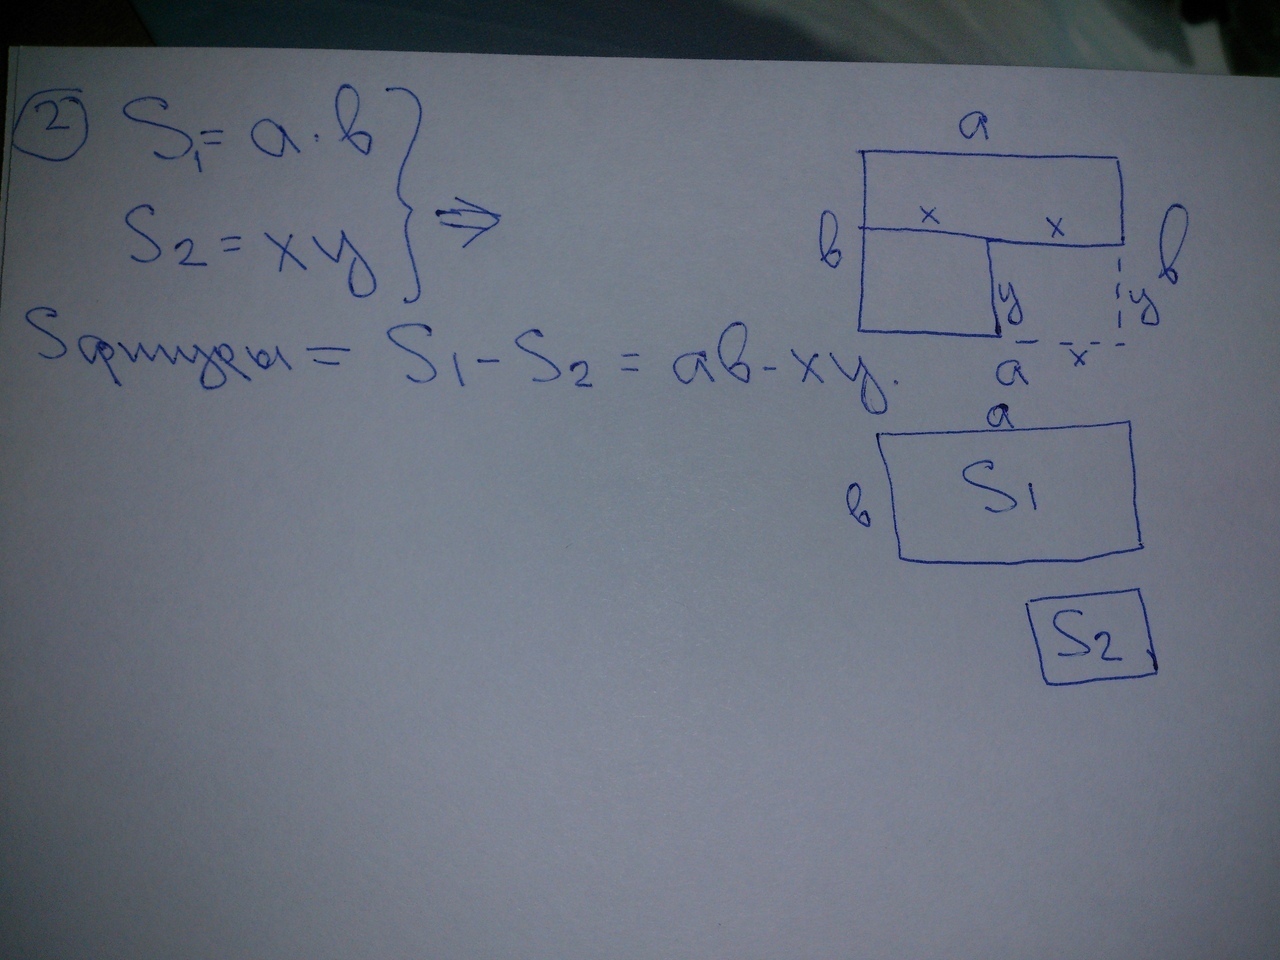 2 S₁ = a · b
S₂ = xy } ⇒
Sфигуры = S₁ - S₂ = ab - xy.
a
b x x b
y y
a x
a
b S₁
S₂